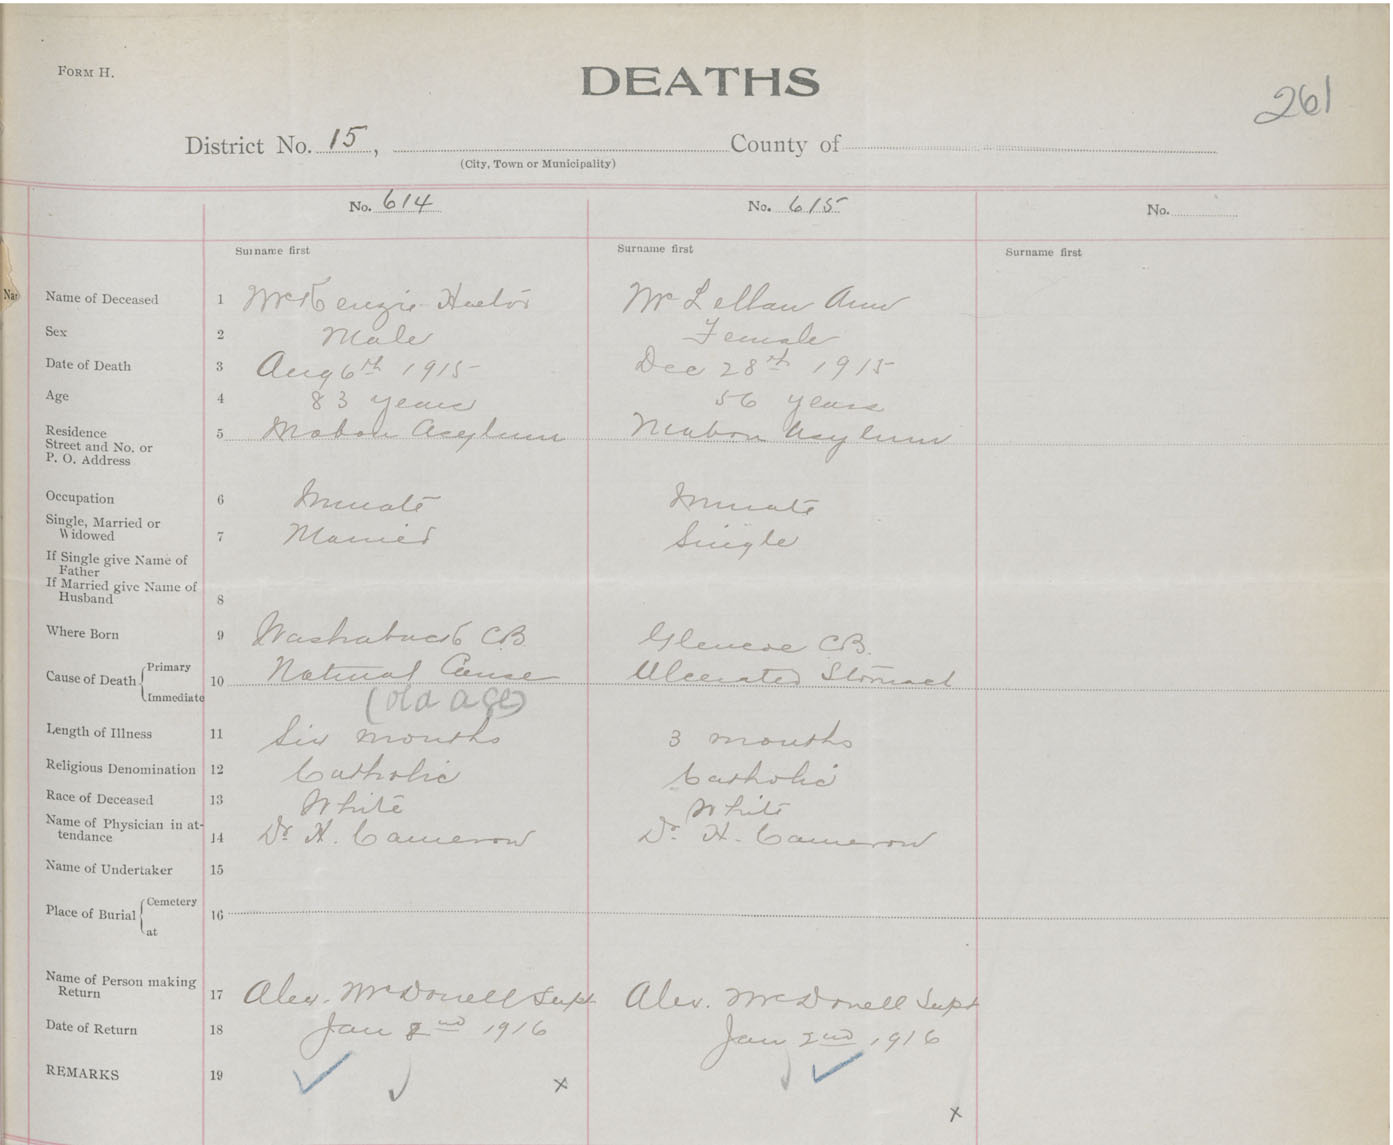 FORM H.
DEATHS
261
District No. 15, County of
(City, Town or Municipality)
No. 614 No. 615 No.
Surname first Surname first Surname first
Name of Deceased 1 McKenzie Hector Mc Lellan Ann
Sex 2 Male Female
Date of Death 3 Aug 6th 1915 Dec 28th 1915
Age 4 83 years 56 years
Residence
Street and No. or 5 Mabou Asylum Mabou Asylum
P. O. Address
Occupation 6 Inmate Inmate
Single, Married or
Widowed 7 Married Single
If Single give Name of
Father
If Married give Name of
Husband 8
Where Born 9 Washabuck CB Glencoe CB.
Cause of Death Primary 10 Natural Cause Ulcerated Stomach
Immediate (old age)
Length of Illness 11 Six months 3 months
Religious Denomination 12 Catholic Catholic
Race of Deceased 13 White White
Name of Physician in at-
tendance 14 Dr H. Cameron Dr H. Cameron
Name of Undertaker 15
Place of Burial Cemetery 16
at
Name of Person making
Return 17 Alex. McDonell Supt Alex. McDonell Supt
Date of Return 18 Jan 2nd 1916 Jan 2nd 1916
REMARKS 19 x
x